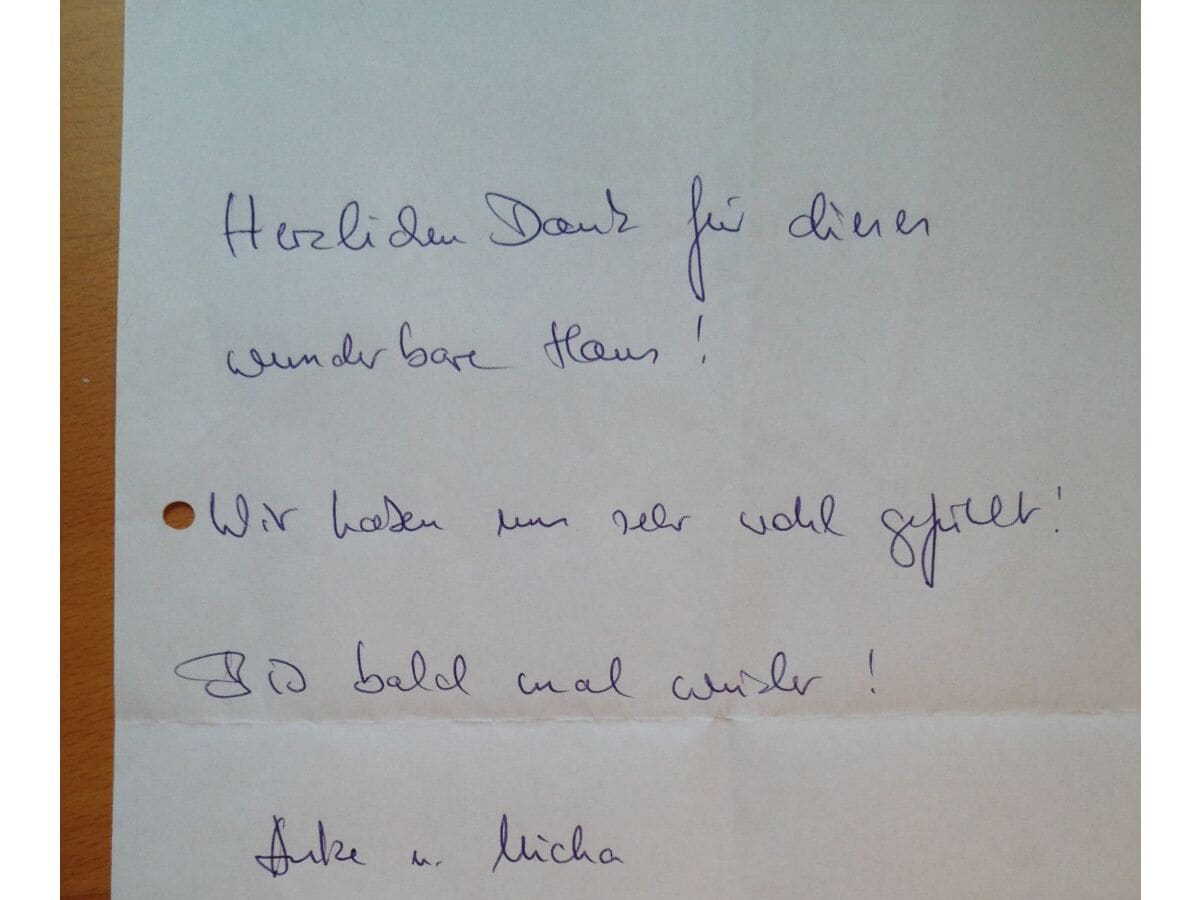 Herzlichen Dank für dieses
wunderbare Haus!
Wir haben uns sehr wohl gefühlt!
Bis bald mal wieder!
Anke u. Micha